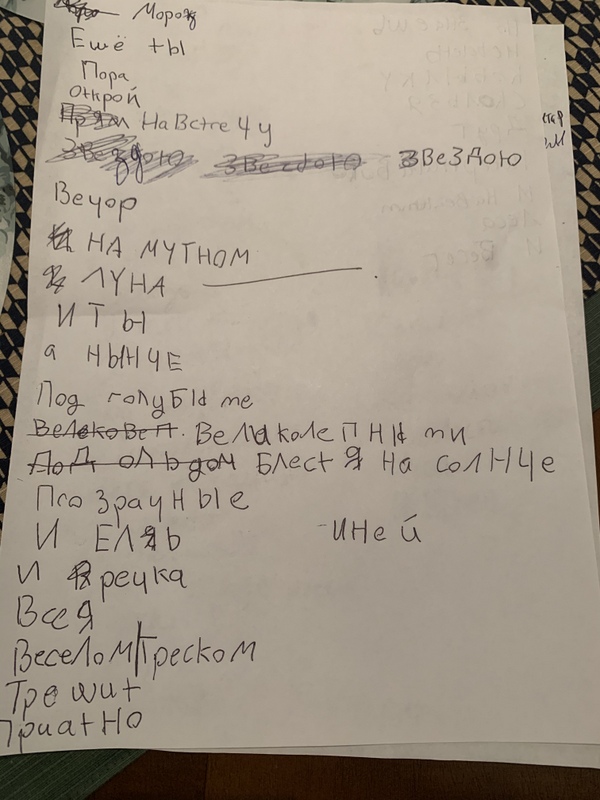 Мороз
Ешё ты
Пора
открой
На Встгечу
звездою звесдою звездою
Вечор
НА мутном
ЛУНА
И Ты
а НЫНЧЕ
Под голубы ме
Велековеп. Великолепны ми
Под ольдом Блестя на солнце
Прозрачные
И ЕЛЬ -иней
И речка
Вся
Веселом/треском
Трешит
Приатно